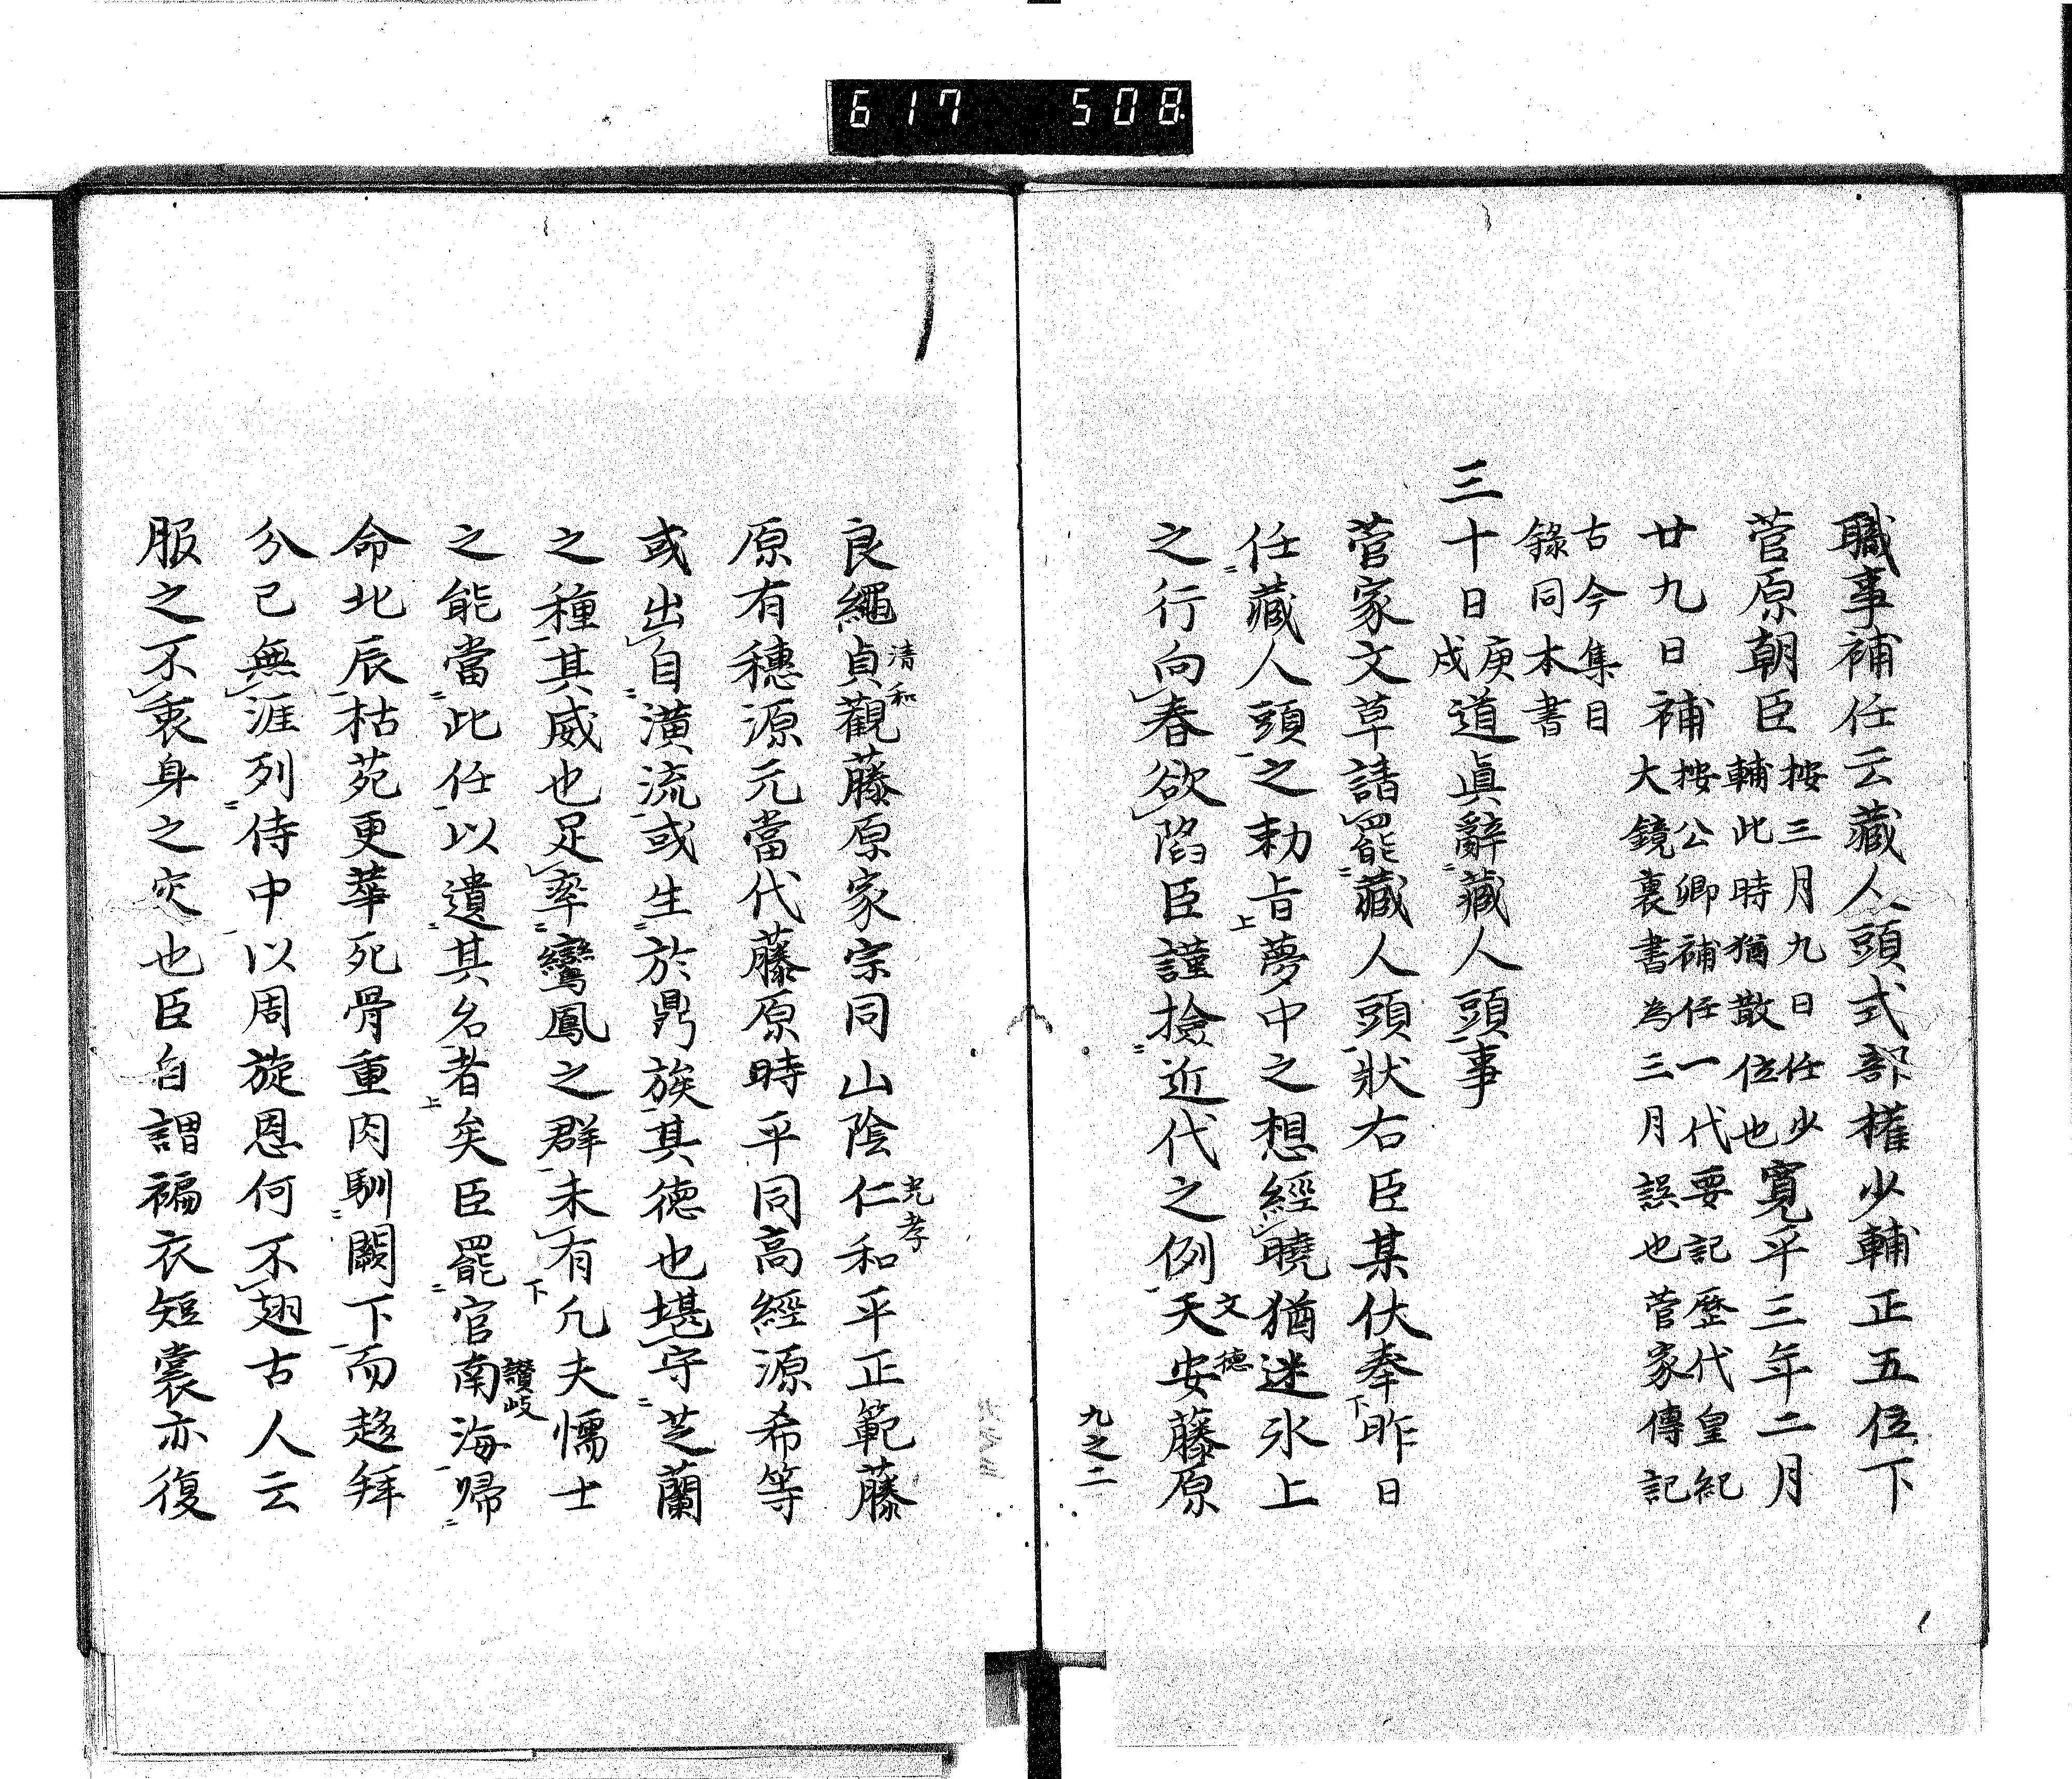 617 508
職事補任云藏人頭式部權少輔正五位下
菅原朝臣 按三月九日任少輔此時猶散位也 寬平三年二月
廿九日補 按公卿補任一代要記歷代皇紀大鏡裏書為三月誤也菅家傳記
古今集目錄同本書
三十日庚戌道眞辭藏人頭事
菅家文草請罷藏人頭狀右臣某伏奉昨日
任藏人頭之勅旨夢中之想經曉猶迷氷上
之行向春欲陷臣謹撿近代之例天安文德藤原
九之二
良繩貞觀清和藤原家宗同山陰仁和光孝平正範藤
原有穗源元當代藤原時平同高經源希等
或出自潢流或生於鼎族其德也堪守芝蘭
之種其威也足率鸞鳳之群未有凡夫懦士
之能當此任以遺其名者矣臣罷官南海讃岐歸
命北辰枯苑更華死骨重肉馴闕下而趍拜
分已無涯列侍中以周旋恩何不翅古人云
服之不衷身之灾也臣自謂褊衣短裳亦復